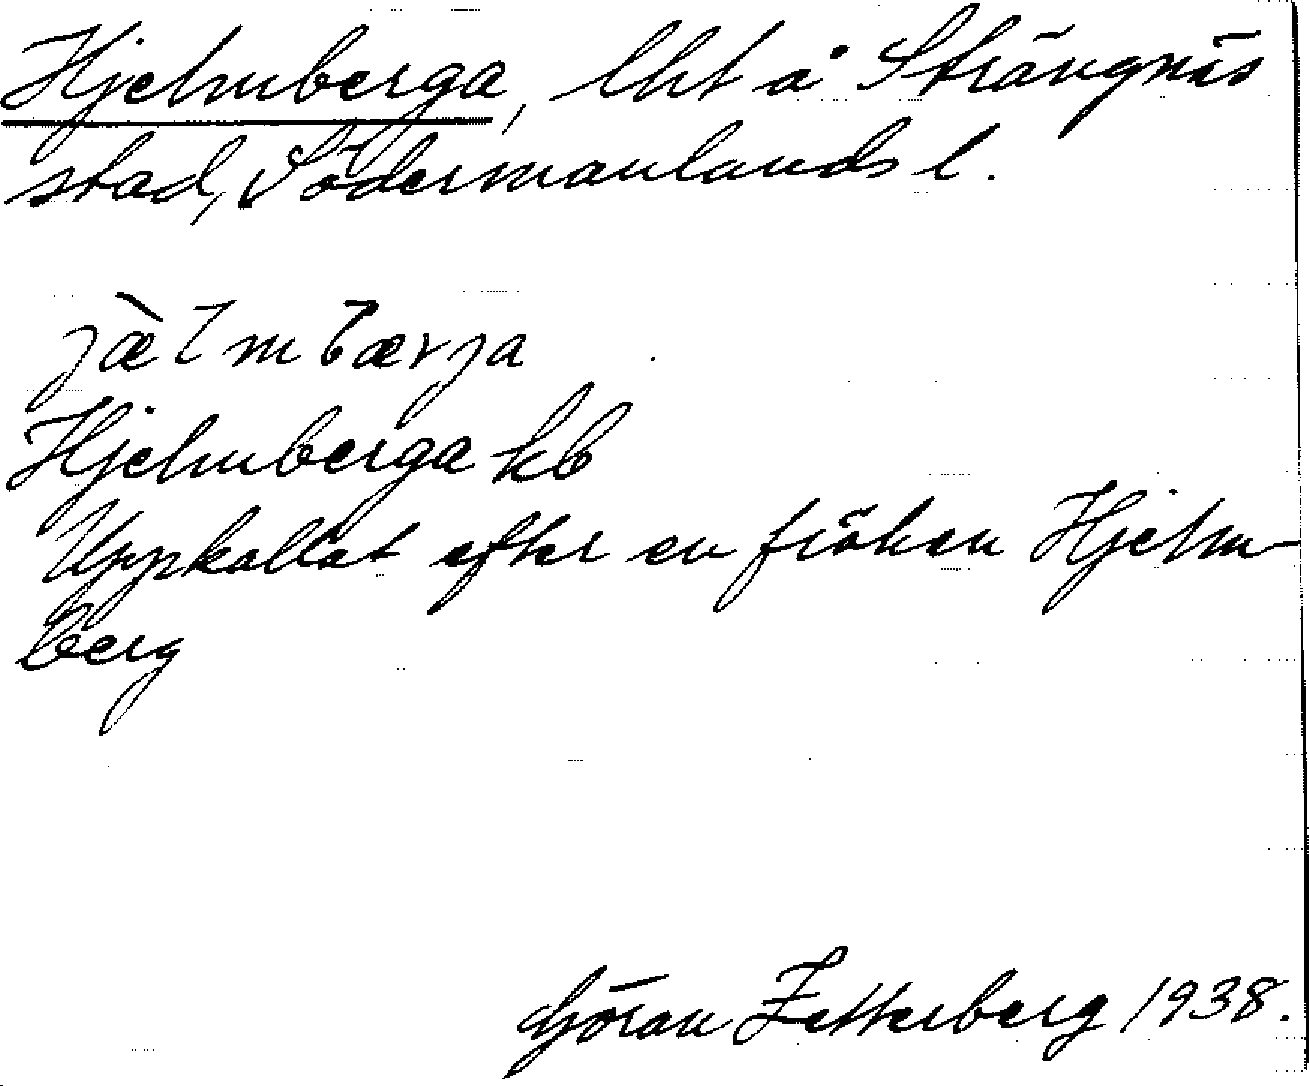 Hjelmberga, lht å Strängnäs
stad, Södermanlands l.
jæ̀lmbærja
Hjelmberga kb
Uppkallat efter en fröken Hjelm-
berg
Göran Zetterberg 1938.